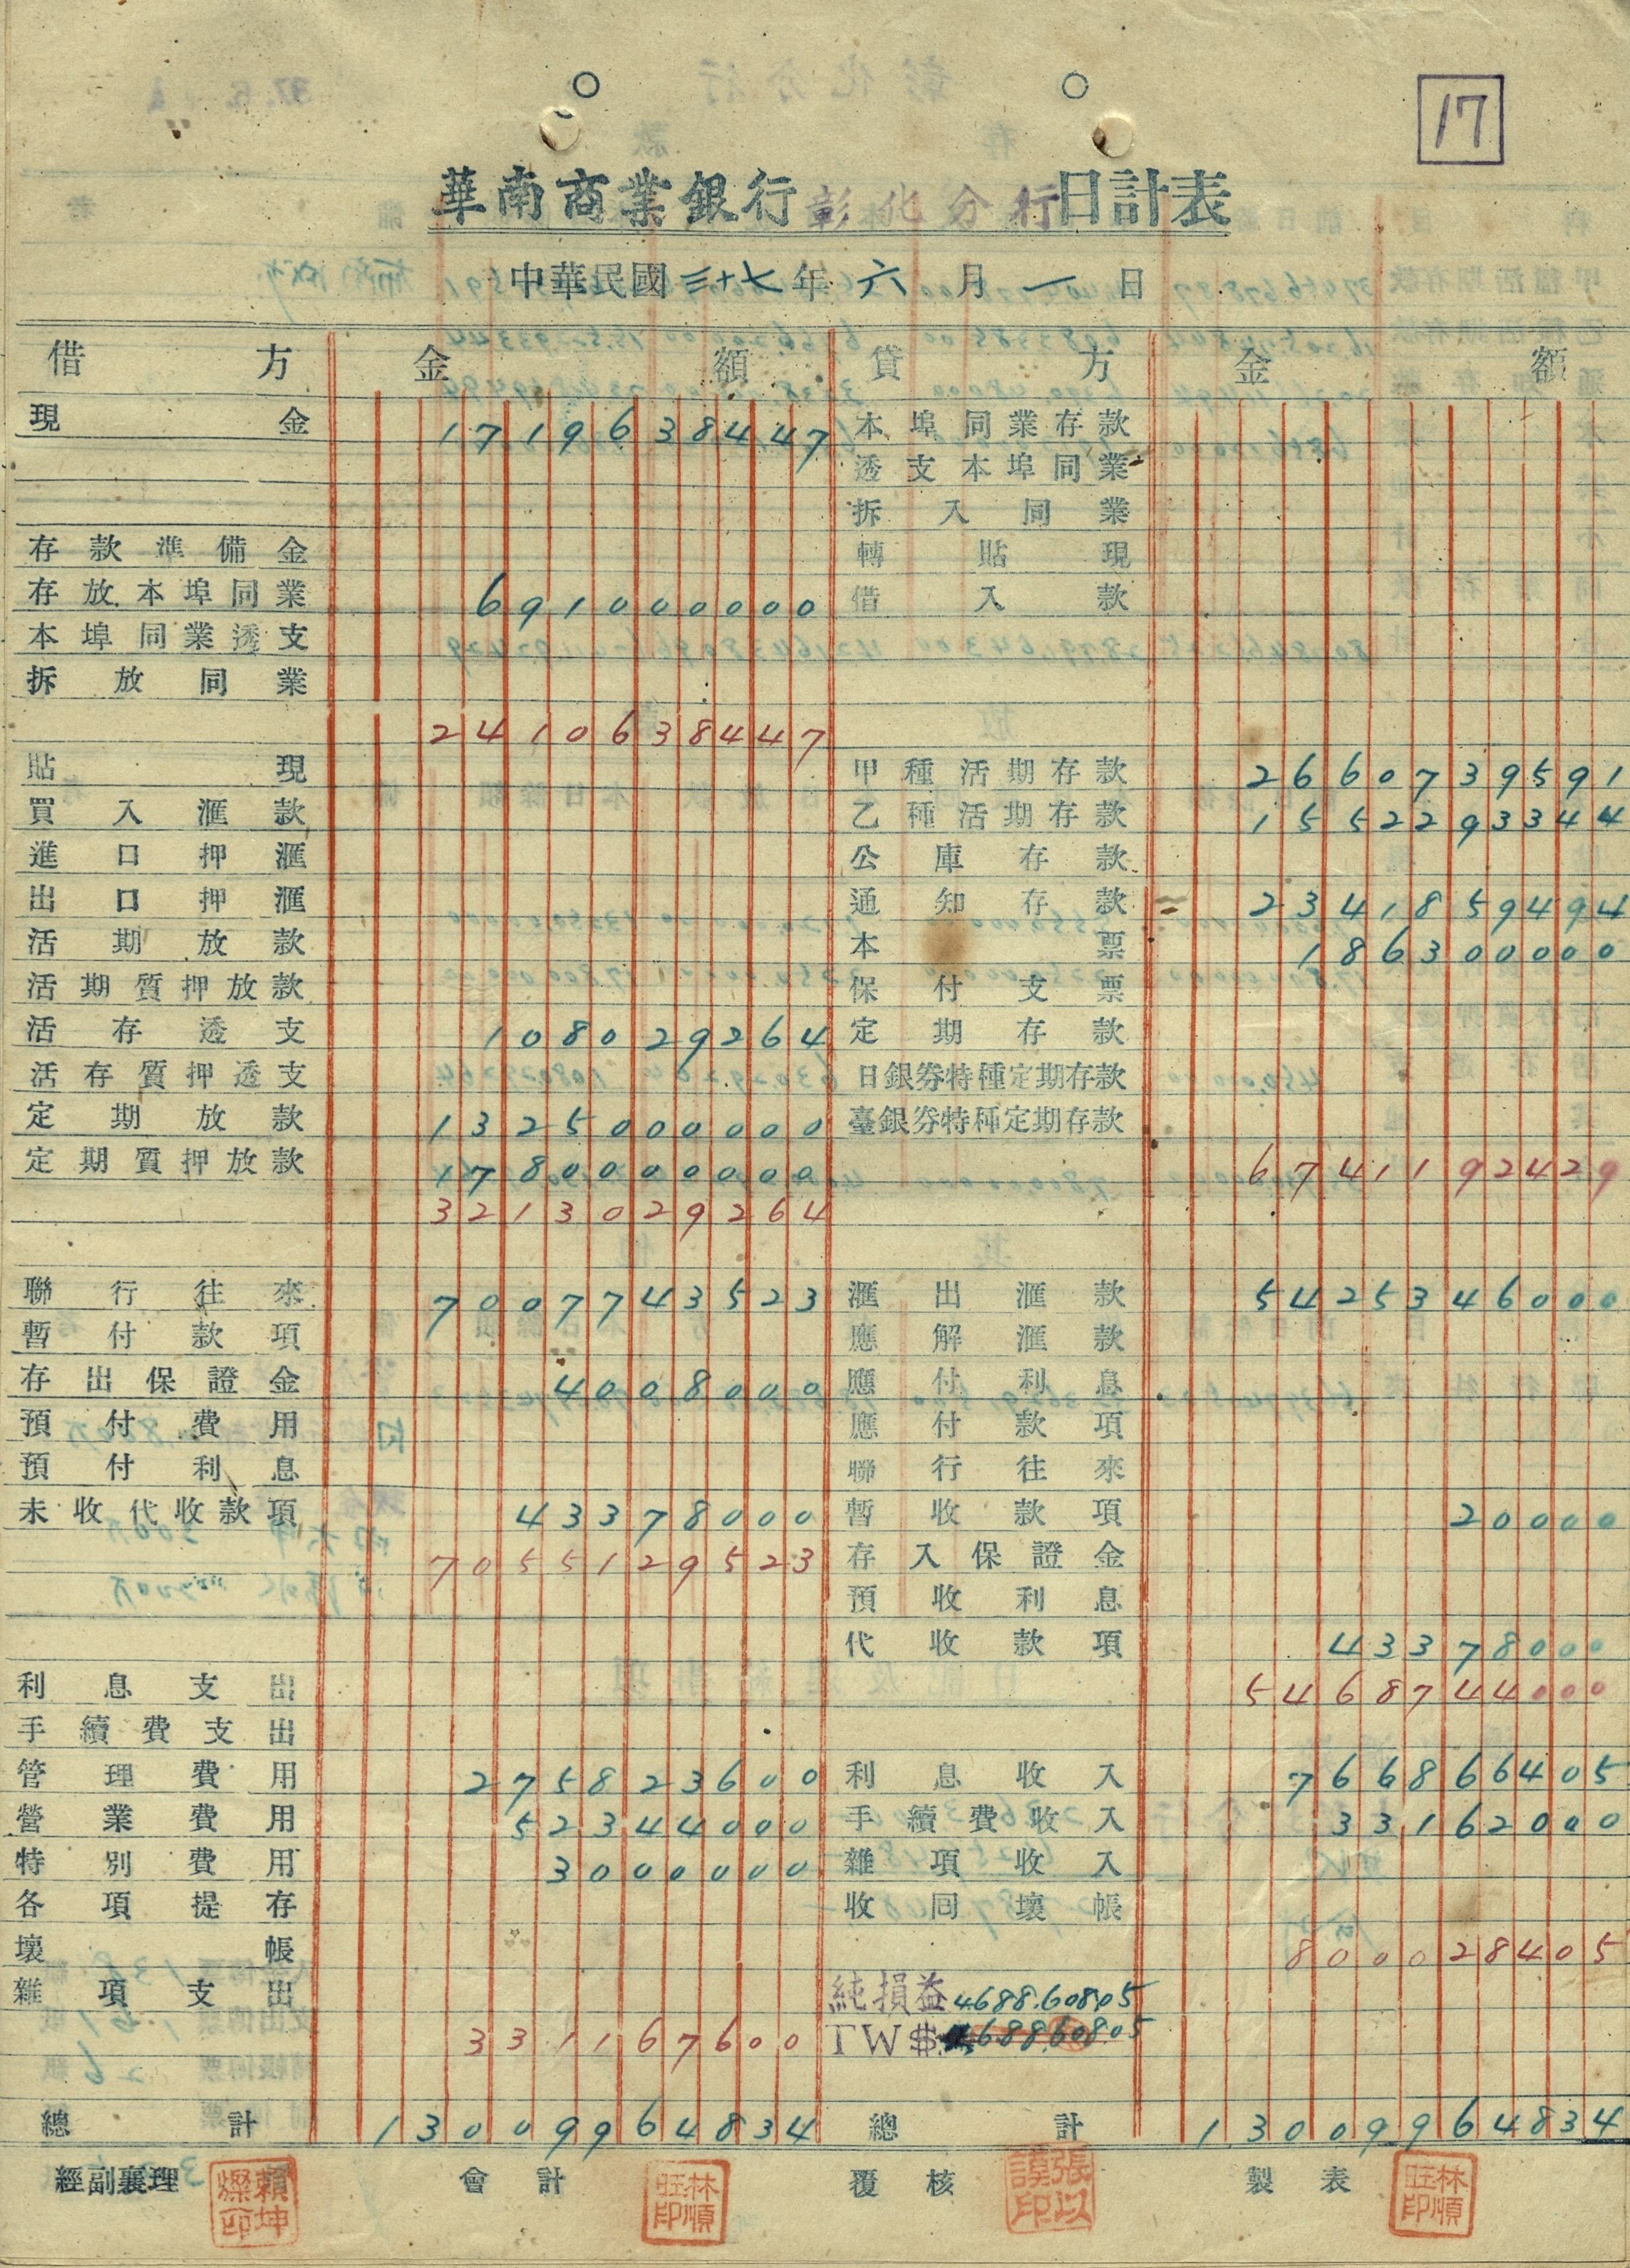 17
華南商業銀行彰化分行日計表
中華民國三十七年六月一日
借方 金額 貸方 金額
現金 1719638447 本埠同業存款
透支本埠同業
拆入同業
存款準備金 轉貼現
存放本埠同業 691000000 借入款
本埠同業透支
拆放同業
2410638447
貼現 甲種活期存款 2660739591
買入滙款 乙種活期存款 1552293344
進口押滙 公庫存款
出口押滙 通知存款 2341859494
活期放款 本票 186300000
活期質押放款 保付支票
活存透支 108029264 定期存款
活存質押透支 日銀券特種定期存款
定期放款 1325000000 臺銀券特種定期存款
定期質押放款 1780000000 6741192429
3213029264
聯行往來 7007743523 滙出滙款 5425346000
暫付款項 應解滙款
存出保證金 4008000 應付利息
預付費用 應付款項
預付利息 聯行往來
未收代收款項 43378000 暫收款項 20000
7055129523 存入保證金
預收利息
代收款項 43378000
利息支出 5468744000
手續費支出
管理費用 275823600 利息收入 766866405
營業費用 52344000 手續費收入 33162000
特別費用 3000000 雜項收入
各項提存 收回壞帳
壞帳 800028405
雜項支出 純損益 4688.608.05
331167600 TW$ 4688.608.05
總計 13009964834 總計 13009964834
經副襄理 賴坤燦印 會計 林順旺印 覆核 張以謨印 製表 林順旺印